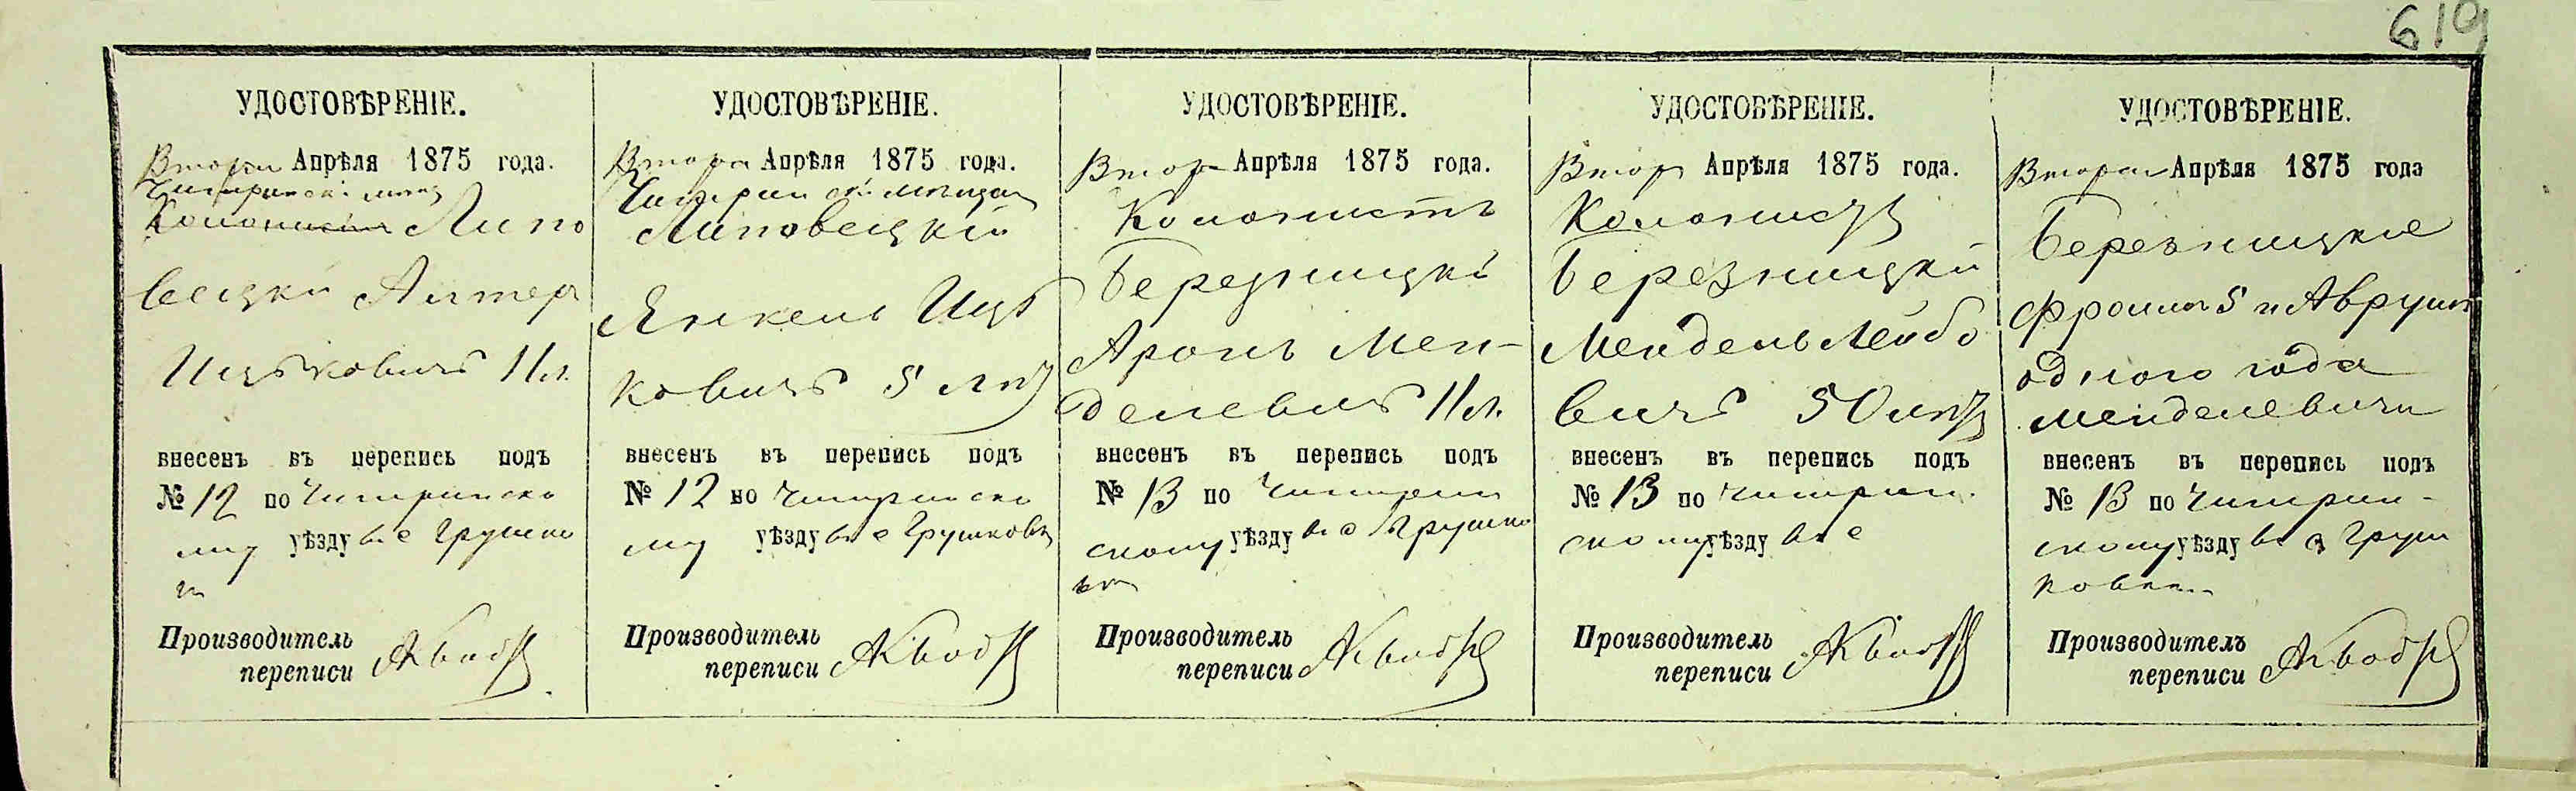 619
УДОСТОВѢРЕНІЕ.
Втораго Апрѣля 1875 года.
Чигиринскій мѣщ
Колонистъ Липо
вецкій Алтеръ
Ицьковичъ 11 л.
внесенъ въ перепись подъ
№ 12 по Чигиринско
му уѣзду въ с Грушков
Производитель
переписи
УДОСТОВѢРЕНІЕ.
Втораго Апрѣля 1875 года.
Чигиринскій мѣщан
Липовецкій
Янкель Ицъ
ковичъ 5 лѣтъ
внесенъ въ перепись подъ
№ 12 по Чигиринско
му уѣзду въ с Грушковк
Производитель
переписи
УДОСТОВѢРЕНІЕ.
Втораго Апрѣля 1875 года.
Колонистъ
Березницкі
Аронъ Мен-
делевичъ 11 л.
внесенъ въ перепись подъ
№ 13 по Чигирин
скому уѣзду въ с Грушко
вк
Производитель
переписи
УДОСТОВѢРЕНІЕ.
Втор Апрѣля 1875 года.
Колонистъ
Березницкій
Мендель Лейбо
вичъ 50 лѣтъ
внесенъ въ перепись подъ
№ 13 по Чигирин.
скому уѣзду въ с
Производитель
переписи
УДОСТОВѢРЕНІЕ.
Втораго Апрѣля 1875 года
Березницкіе
Фроим 5 и Аврум
одного года
Менделевичи
внесенъ въ перепись подъ
№ 13 по Чигирин-
скому уѣзду въ с Груш
ковки
Производитель
переписи